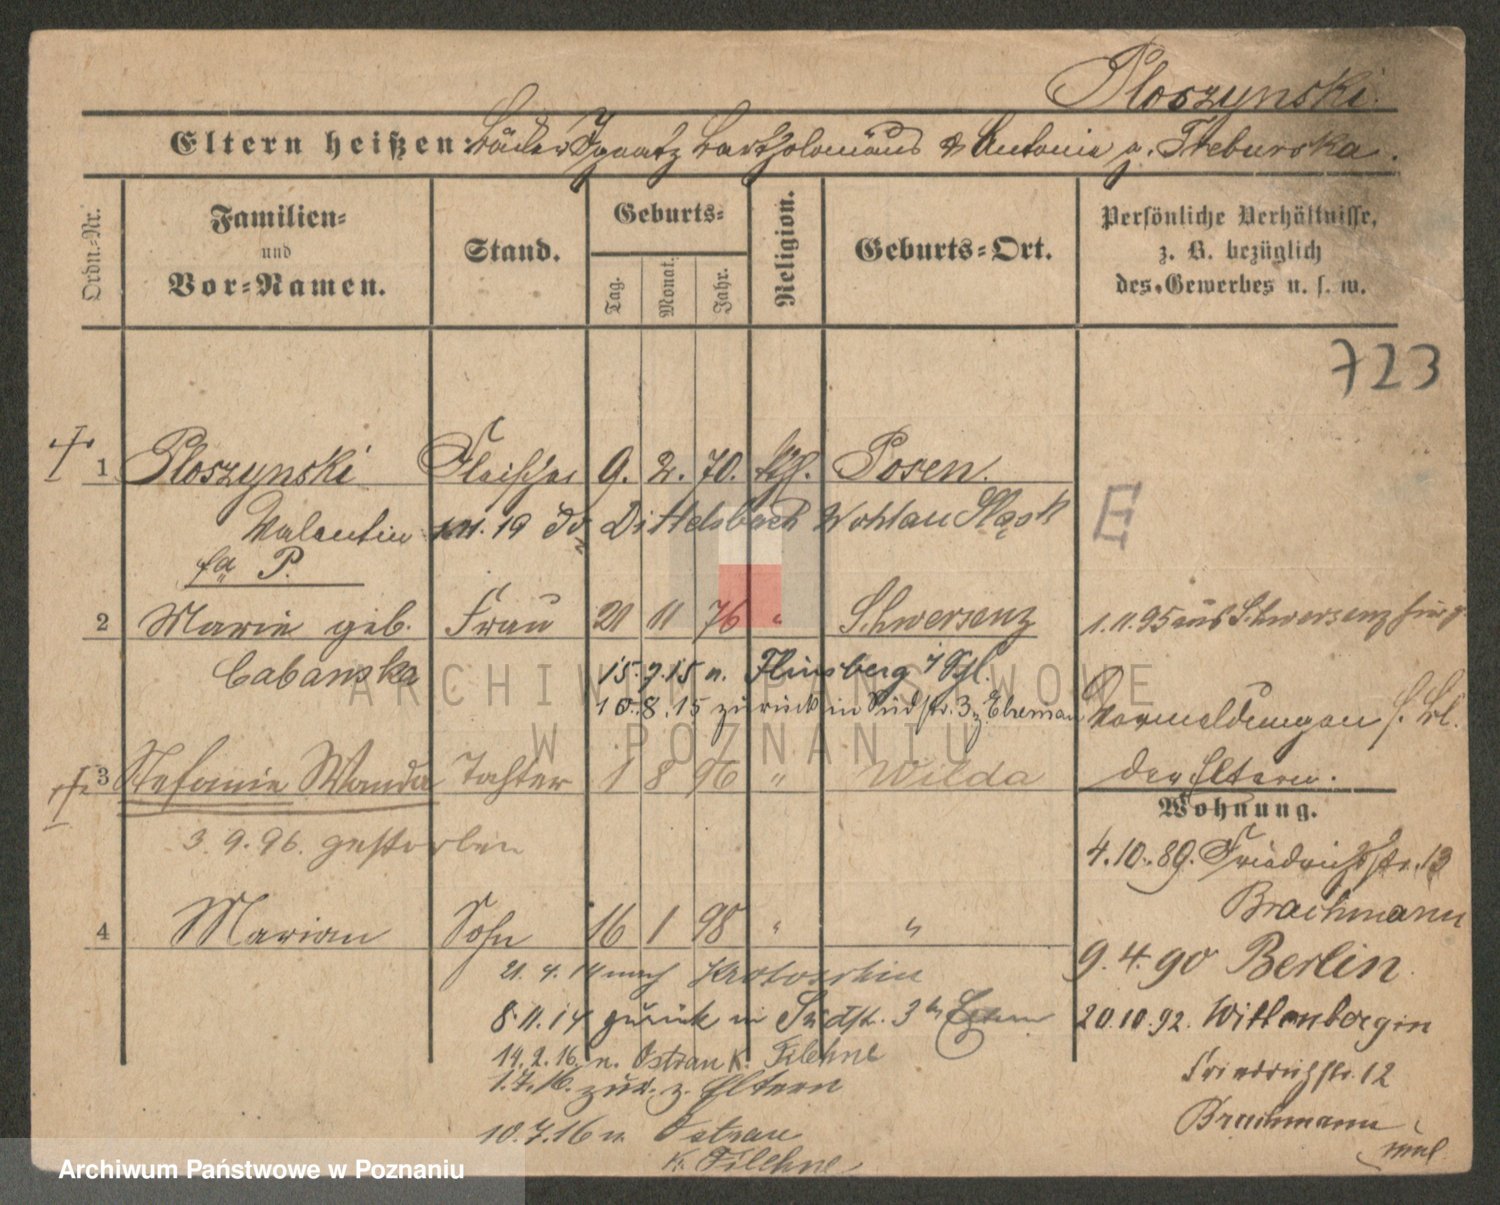 Ploszynski.
Eltern heißen: Bäcker Ignatz Bartholomäus & Antonie g. Treburska.
Ordn.-Nr.
Familien- und Vor-Namen.
Stand.
Geburts-
Tag.
Monat.
Jahr.
Religion.
Geburts-Ort.
Persönliche Verhältnisse, z. B. bezüglich des Gewerbes u. s. w.
723
1 Ploszynski Fleischer 9. 2. 70. kth. Posen.
Valentin 19 Dittelsbach Wohlau Śląsk
E
P.
2 Marie geb. Frau 21 11 76 " Schwersenz
1.11.95 aus Schwersenz
Cabanska 15.7.15 n. Flinsberg i/Schl.
10.8.15 zurück in Südstr. 3
Vormeldungen s. Bl.
der Eltern.
3 Stefanie Wanda Tochter 1 8 96 " Wilda
3.9.96. gestorben
Wohnung.
4.10.89. Friedrichstr. 13
Brachmann
4 Marian Sohn 16 1 98 " "
9.4.90 Berlin.
21.4.14 nach Krotoschin
8.11.14 zurück in Südstr. 3 Eltern
20.10.92. Wittenberg in
14.2.16. n. Ostrau K. Filehne
Friedrichstr. 12
1.7.16. zur. z. Eltern
Brachmann
10.7.16 n. Ostrau
K. Filehne
ARCHIWUM PAŃSTWOWE
W POZNANIU
Archiwum Państwowe w Poznaniu